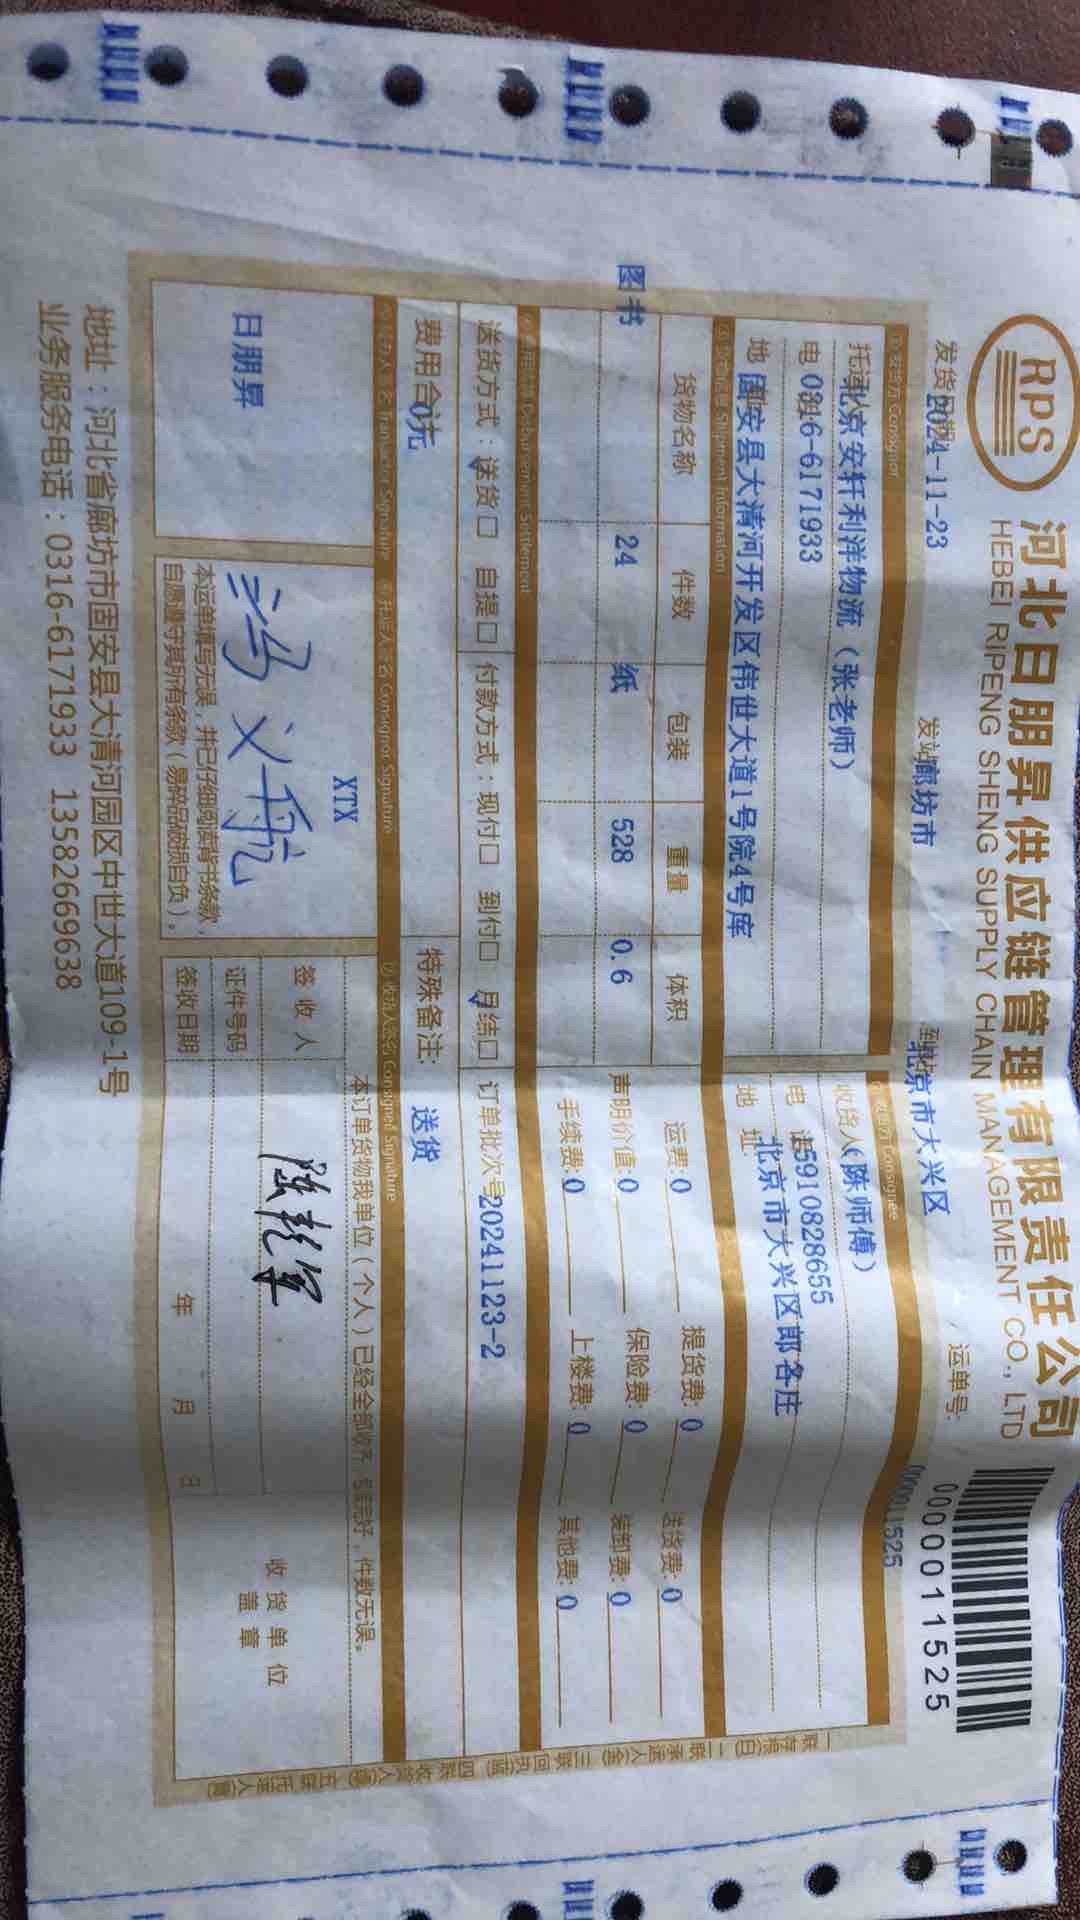 RPS
河北日朋昇供应链管理有限责任公司
HEBEI RIPENG SHENG SUPPLY CHAIN MANAGEMENT CO., LTD
0000011525
发货日期: 2024-11-23 发站: 廊坊市 到站: 北京市大兴区 运单号:
0000011525
①发货方 Consignor
托运人: 北京安轩利洋物流（张老师）
电话: 0316-6171933
地址: 固安县大清河开发区伟世大道1号院4号库
收货方 Consignee
收货人（陈师傅）
电话 15910828655
地址 北京市大兴区郎各庄
③货物信息 Shipment Information
货物名称 件数 包装 重量 体积
图书 24 纸 528 0.6
运费:0 提货费:0 送货费:0
声明价值:0 保险费:0 装卸费:0
手续费:0 上楼费:0 其他费:0
费用结算 Disbursement Settlement
送货方式：送货☐ 自提☐ 付款方式：现付☐ 到付☐ 月结☐ 订单批次号 20241123-2
费用合计: 0元 特殊备注: 送货
经办人签名 Transactor Signature
⑥托运人签名 Consignor Signature
⑦收货人签名 Consigned Signature
日朋昇
XTX
冯义航
本运单填写无误，并已仔细阅读背书条款，
自愿遵守其所有条款（易碎品破损自负）。
本订单货物我单位（个人）已经全部收齐，包装完好，件数无误。
签收人
证件号码
签收日期 年 月 日
收货单位
盖章
地址：河北省廊坊市固安县大清河园区中世大道109-1号
业务服务电话：0316-6171933 13582669638